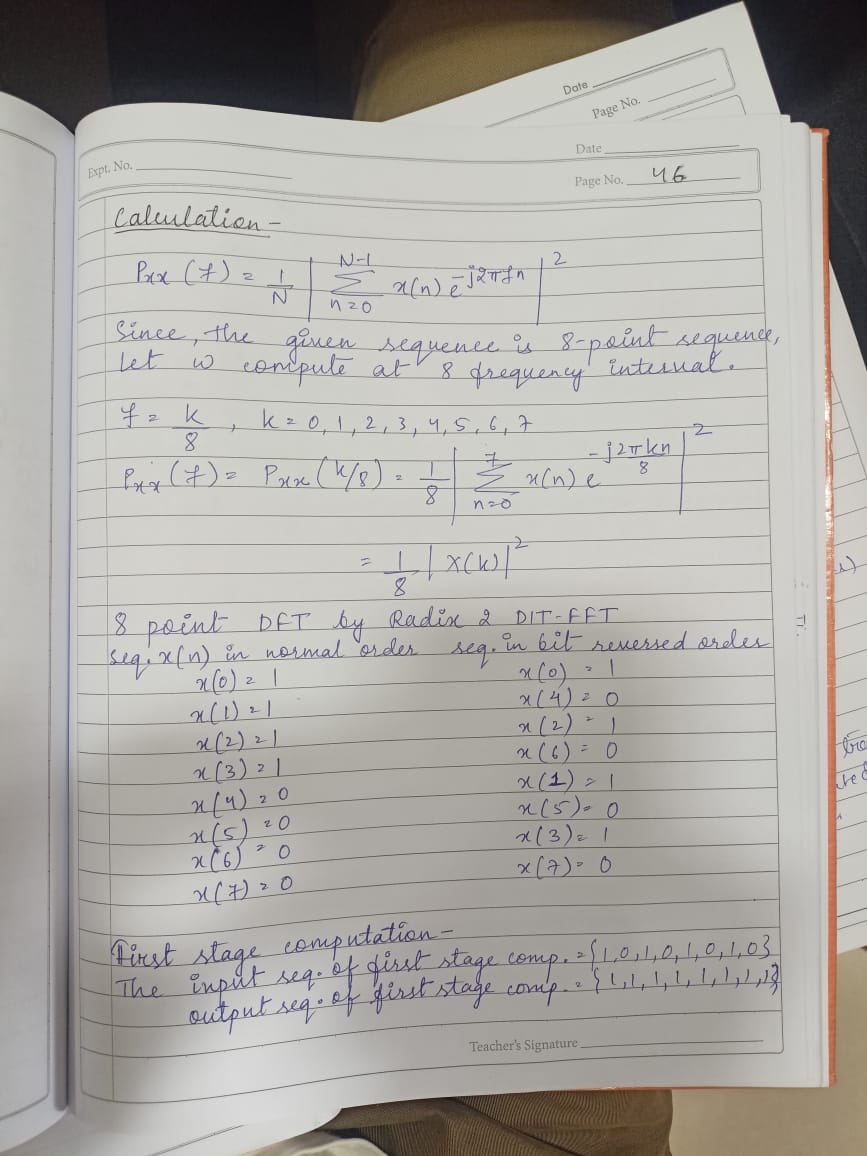 Date
Page No.
Expt. No.
Date
Page No. 46
Calculation -
Pxx (f) = 1/N | Σ_{n=0}^{N-1} x(n) e^{-j2πfn} |^2
Since, the given sequence is 8-point sequence,
let w compute at 8 frequency interval.
f = k/8 , k = 0, 1, 2, 3, 4, 5, 6, 7
Pxx (f) = Pxx (k/8) = 1/8 | Σ_{n=0}^{7} x(n) e^{-j2πkn/8} |^2
= 1/8 | X(k) |^2
8 point DFT by Radix 2 DIT-FFT
seq. x(n) in normal order seq. in bit reversed order
x(0) = 1 x(0) = 1
x(1) = 1 x(4) = 0
x(2) = 1 x(2) = 1
x(3) = 1 x(6) = 0
x(4) = 0 x(1) = 1
x(5) = 0 x(5) = 0
x(6) = 0 x(3) = 1
x(7) = 0 x(7) = 0
First stage computation -
The input seq. of first stage comp. = {1,0,1,0,1,0,1,0}
output seq. of first stage comp. = {1,1,1,1,1,1,1,1}
Teacher's Signature